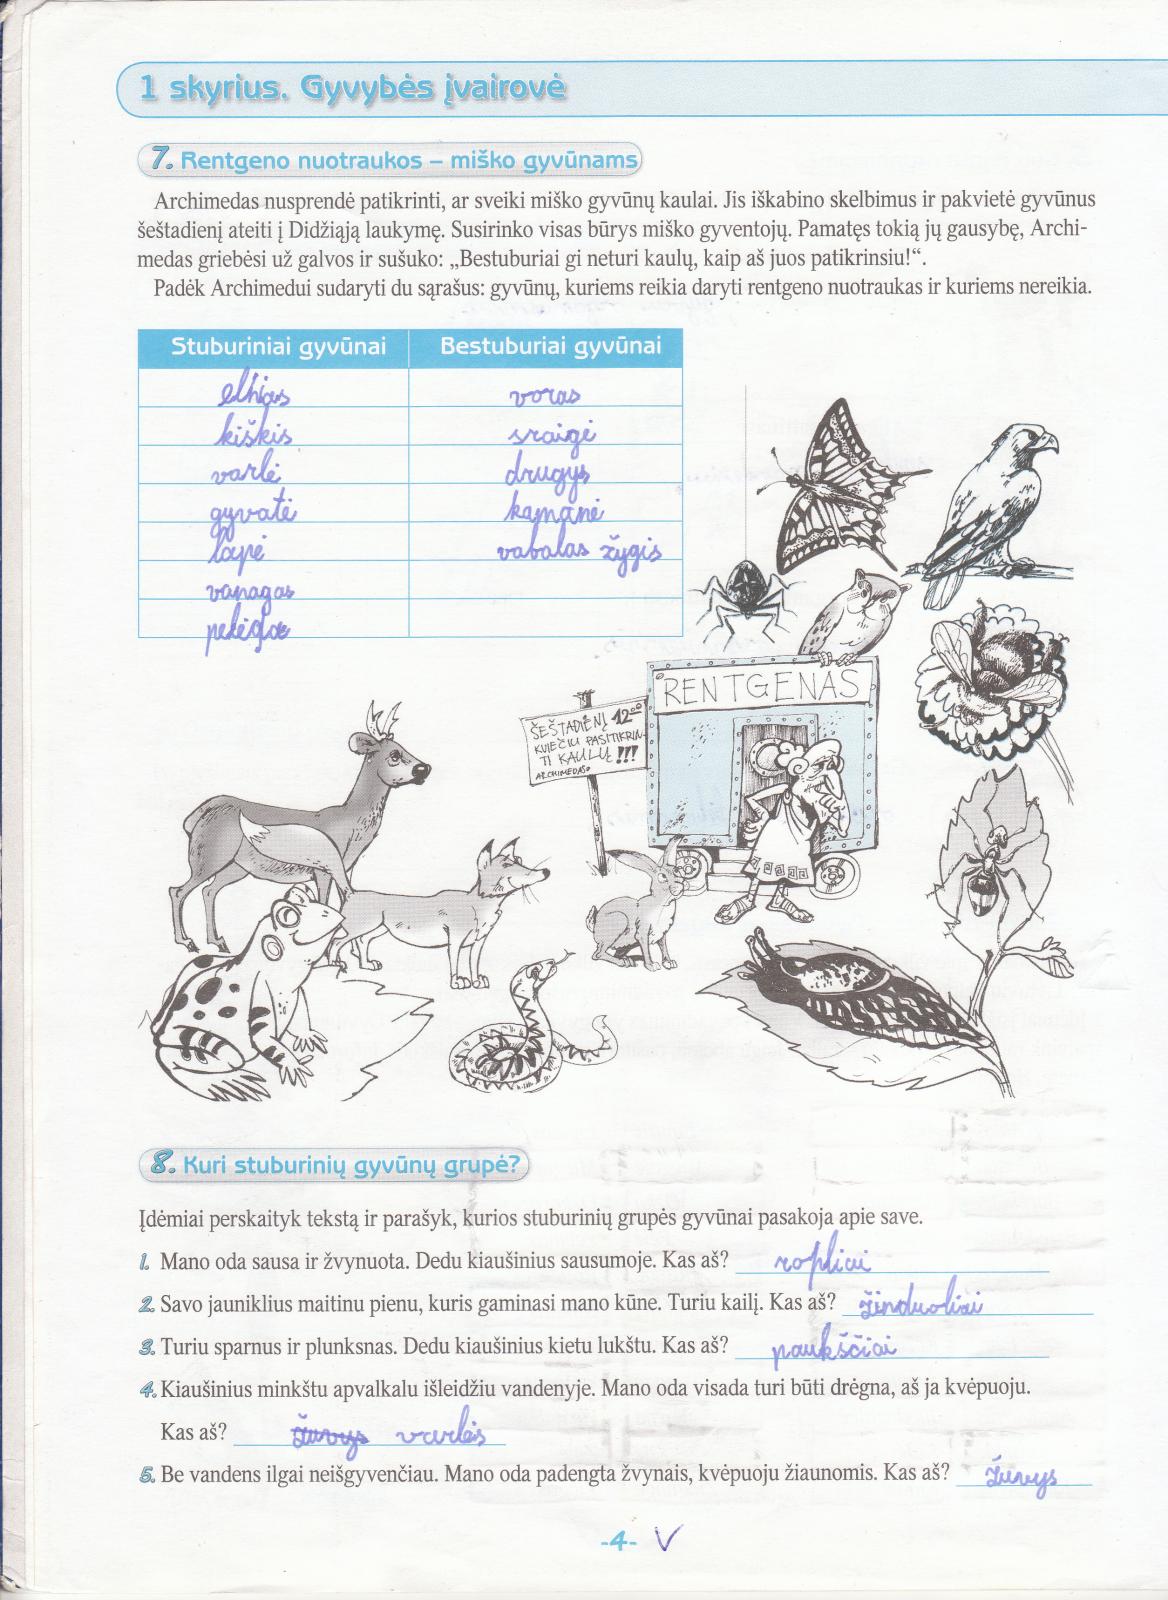 1 skyrius. Gyvybės įvairovė
7. Rentgeno nuotraukos – miško gyvūnams
Archimedas nusprendė patikrinti, ar sveiki miško gyvūnų kaulai. Jis iškabino skelbimus ir pakvietė gyvūnus
šeštadienį ateiti į Didžiąją laukymę. Susirinko visas būrys miško gyventojų. Pamatęs tokią jų gausybę, Archi-
medas griebėsi už galvos ir sušuko: „Bestuburiai gi neturi kaulų, kaip aš juos patikrinsiu!“.
Padėk Archimedui sudaryti du sąrašus: gyvūnų, kuriems reikia daryti rentgeno nuotraukas ir kuriems nereikia.
Stuburiniai gyvūnai Bestuburiai gyvūnai
elnias voras
kiškis sraigė
varlė drugys
gyvatė kamanė
lapė vabalas žygis
vanagas
pelėda
RENTGENAS
ŠEŠTADIENĮ 12⁰⁰
KVIEČIU PASITIKRIN-
TI KAULŲ !!!
ARCHIMEDAS
8. Kuri stuburinių gyvūnų grupė?
Įdėmiai perskaityk tekstą ir parašyk, kurios stuburinių grupės gyvūnai pasakoja apie save.
1. Mano oda sausa ir žvynuota. Dedu kiaušinius sausumoje. Kas aš? ropliai
2. Savo jauniklius maitinu pienu, kuris gaminasi mano kūne. Turiu kailį. Kas aš? žinduoliai
3. Turiu sparnus ir plunksnas. Dedu kiaušinius kietu lukštu. Kas aš? paukščiai
4. Kiaušinius minkštu apvalkalu išleidžiu vandenyje. Mano oda visada turi būti drėgna, aš ja kvėpuoju.
Kas aš? žuvys varlės
5. Be vandens ilgai neišgyvenčiau. Mano oda padengta žvynais, kvėpuoju žiaunomis. Kas aš? žuvys
-4- V